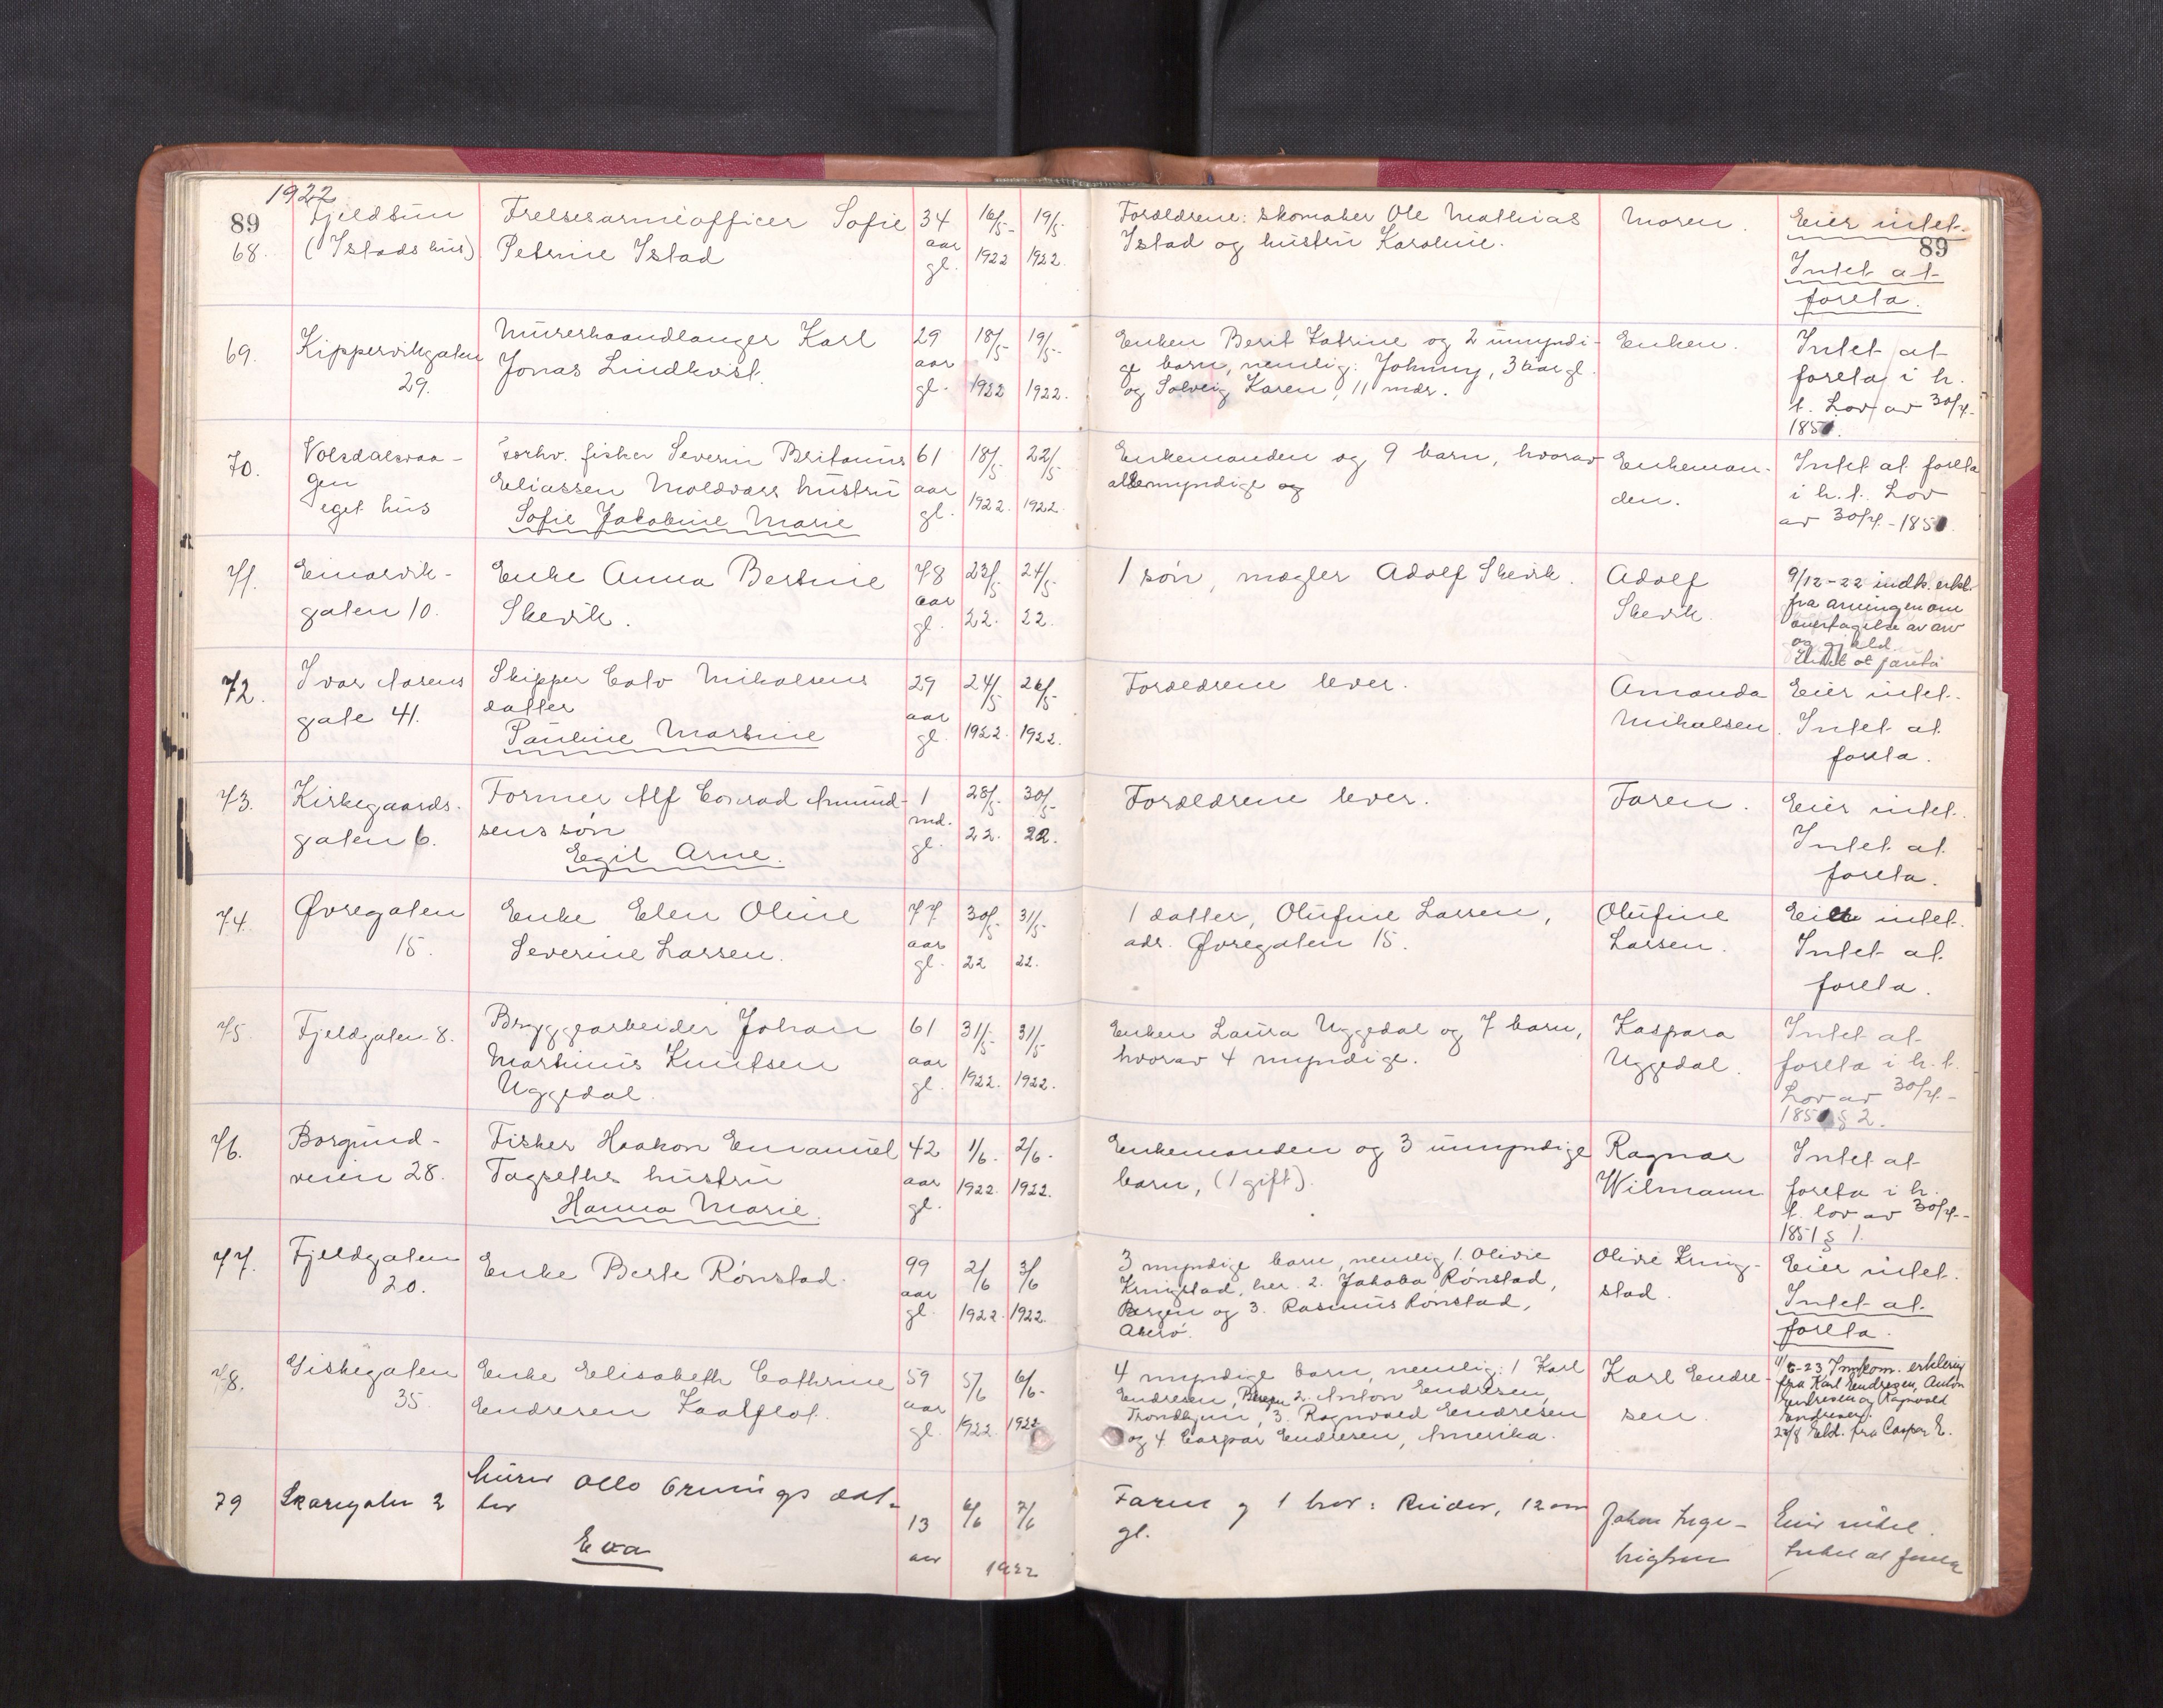 1922
89
89
68.
Fjeldtun
(Istads hus)
Frelsesarméofficer Sofie
Petrine Istad
34
aar
gl.
16/5-
1922
19/5-
1922.
Forældrene: Skomaker Ole Mathias
Istad og hustru Karoline.
Moren.
Eier intet.
Intet at
foreta.
69.
Kippervikgaten
29.
Murerhaandlanger Karl
Jonas Lindkvist.
29
aar
gl.
18/5-
1922
19/5-
1922.
Enken Berit Katrine og 2 umyndi-
ge barn, nemlig: Johnny, 3 aar gl.
og Solveig Karen, 11 mdr.
Enken.
Intet at
foreta i h.
t. Lov av 30/7-
1851.
70.
Volsdalsvaa-
gen
eget hus
forhv. fisker Severin Britanus
Eliassen Moldværs hustru
Sofie Jakobine Marie
61
aar
gl.
18/5
1922.
22/5
1922
Enkemanden og 9 barn, hvorav
alle myndige og
Enkeman-
den.
Intet at foreta
i h.t. Lov
av 30/7.-1851.
71.
Einarvik-
gaten 10.
Enke Anna Bertine
Skevik.
78
aar
gl.
23/5-
22.
24/5-
22.
1 søn, mægler Adolf Skevik.
Adolf
Skevik.
9/12-22 indk. erkl.
fra arvingen om
overtagelse av arv
og gjæld.
Intet at foreta
72.
Ivar Aasens
gate 41.
Skipper Calv Mikalsens
datter
Pauline Martine
29
aar
gl.
24/5-
1922.
26/5-
1922.
Forældrene lever.
Amanda
Mikalsen.
Eier intet.
Intet at
foreta.
73.
Kirkegaards-
gaten 6.
Former Alf Conrad Amund-
sens søn
Egil Arne.
1
md.
gl.
28/5-
22.
30/5-
22.
Forældrene lever.
Faren.
Eier intet.
Intet at
foreta.
74.
Øvregaten
15.
Enke Elen Oline
Severine Larsen.
77
aar
gl.
30/5-
22
31/5-
22.
1 datter, Olufine Larsen,
adr. Øvregaten 15.
Olufine
Larsen.
Eier intet.
Intet at
foreta.
75.
Fjeldgaten 8.
Bryggearbeider Johan
Martinus Knutsen
Uggedal.
61
aar
gl.
31/5-
1922.
31/5-
1922.
Enken Laura Uggedal og 7 barn,
hvorav 4 myndige.
Kaspara
Uggedal.
Intet at
foreta i h.t.
Lov av 30/7.-
1851 § 2.
76.
Borgund-
veien 28.
Fisker Haakon Emanuel
Tagseths hustru
Hanna Marie.
42
aar
gl.
1/6.
1922.
2/6-
1922.
Enkemanden og 3 umyndige
barn, (1 gift).
Ragnar
Wilmann
Intet at
foreta i h.
t. lov av 30/7.-
1851 § 1.
77.
Fjeldgaten
20.
Enke Berte Rønstad.
99
aar
gl.
2/6
1922.
3/6
1922.
3 myndige barn, nemlig 1. Olivie
Kringstad, her. 2. Jakoba Rønstad,
Bergen og 3. Rasmus Rønstad,
Akerø.
Olivie Kring-
stad.
Eier intet.
Intet at
foreta.
78.
Giskegaten
35.
Enke Elisabeth Cathrine
Endresen Kaalflot.
59
aar
gl.
5/6
1922.
6/6-
1922
4 myndige barn, nemlig: 1 Karl
Endresen, Bergen 2. Anton Endresen,
Trondhjem, 3. Ragnvald Endresen
og 4 Caspar Endresen, Amerika.
Karl Endre-
sen.
1/6-23 Innkom. erklæring
fra Karl Endresen, Anton
Endresen og Ragnvald
Endresen.
29/8 Erkl. fra Caspar E.
79
Skaregaten 2
Murer Otto Grunings dat-
ter
Eva
13
aar
6/6
7/6
1922
Faren og 1 bror: Reidar, 12 aar
gl.
Johan Inge-
brigtsen
Eier intet.
Intet at foreta